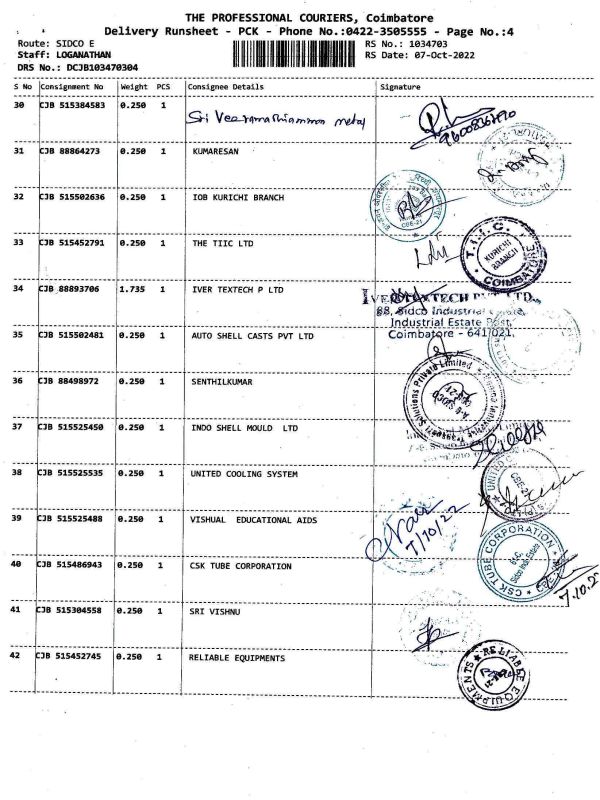 THE PROFESSIONAL COURIERS, Coimbatore
Delivery Runsheet - PCK - Phone No.:0422-3505555 - Page No.:4
Route: SIDCO E RS No.: 1034703
Staff: LOGANATHAN RS Date: 07-Oct-2022
DRS No.: DCJB103470304
S No Consignment No Weight PCS Consignee Details Signature
30 CJB 515384583 0.250 1 Sri Veeramathiamman metal
31 CJB 88864273 0.250 1 KUMARESAN
32 CJB 515502636 0.250 1 IOB KURICHI BRANCH
CBE-21
33 CJB 515452791 0.250 1 THE TIIC LTD
T.I.I.C. KURICHI BRANCH COIMBATORE
34 CJB 88893706 1.735 1 IVER TEXTECH P LTD
88, Sidco Industrial Estate,
Industrial Estate Post,
Coimbatore - 641 021.
35 CJB 515502481 0.250 1 AUTO SHELL CASTS PVT LTD
36 CJB 88498972 0.250 1 SENTHILKUMAR
Solutions Private Limited
37 CJB 515525450 0.250 1 INDO SHELL MOULD LTD
38 CJB 515525535 0.250 1 UNITED COOLING SYSTEM
UNITED CBE-21
39 CJB 515525488 0.250 1 VISHUAL EDUCATIONAL AIDS
7/10/22
40 CJB 515486943 0.250 1 CSK TUBE CORPORATION
CSK TUBE CORPORATION
7.10.2
41 CJB 515304558 0.250 1 SRI VISHNU
42 CJB 515452745 0.250 1 RELIABLE EQUIPMENTS
RELIABLE EQUIPMENTS